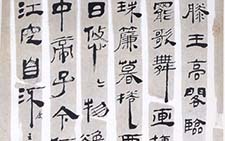 滕王高閣臨
罷歌舞画
珠簾暮捲西
日悠〻物換
中帝子今何
江空自流